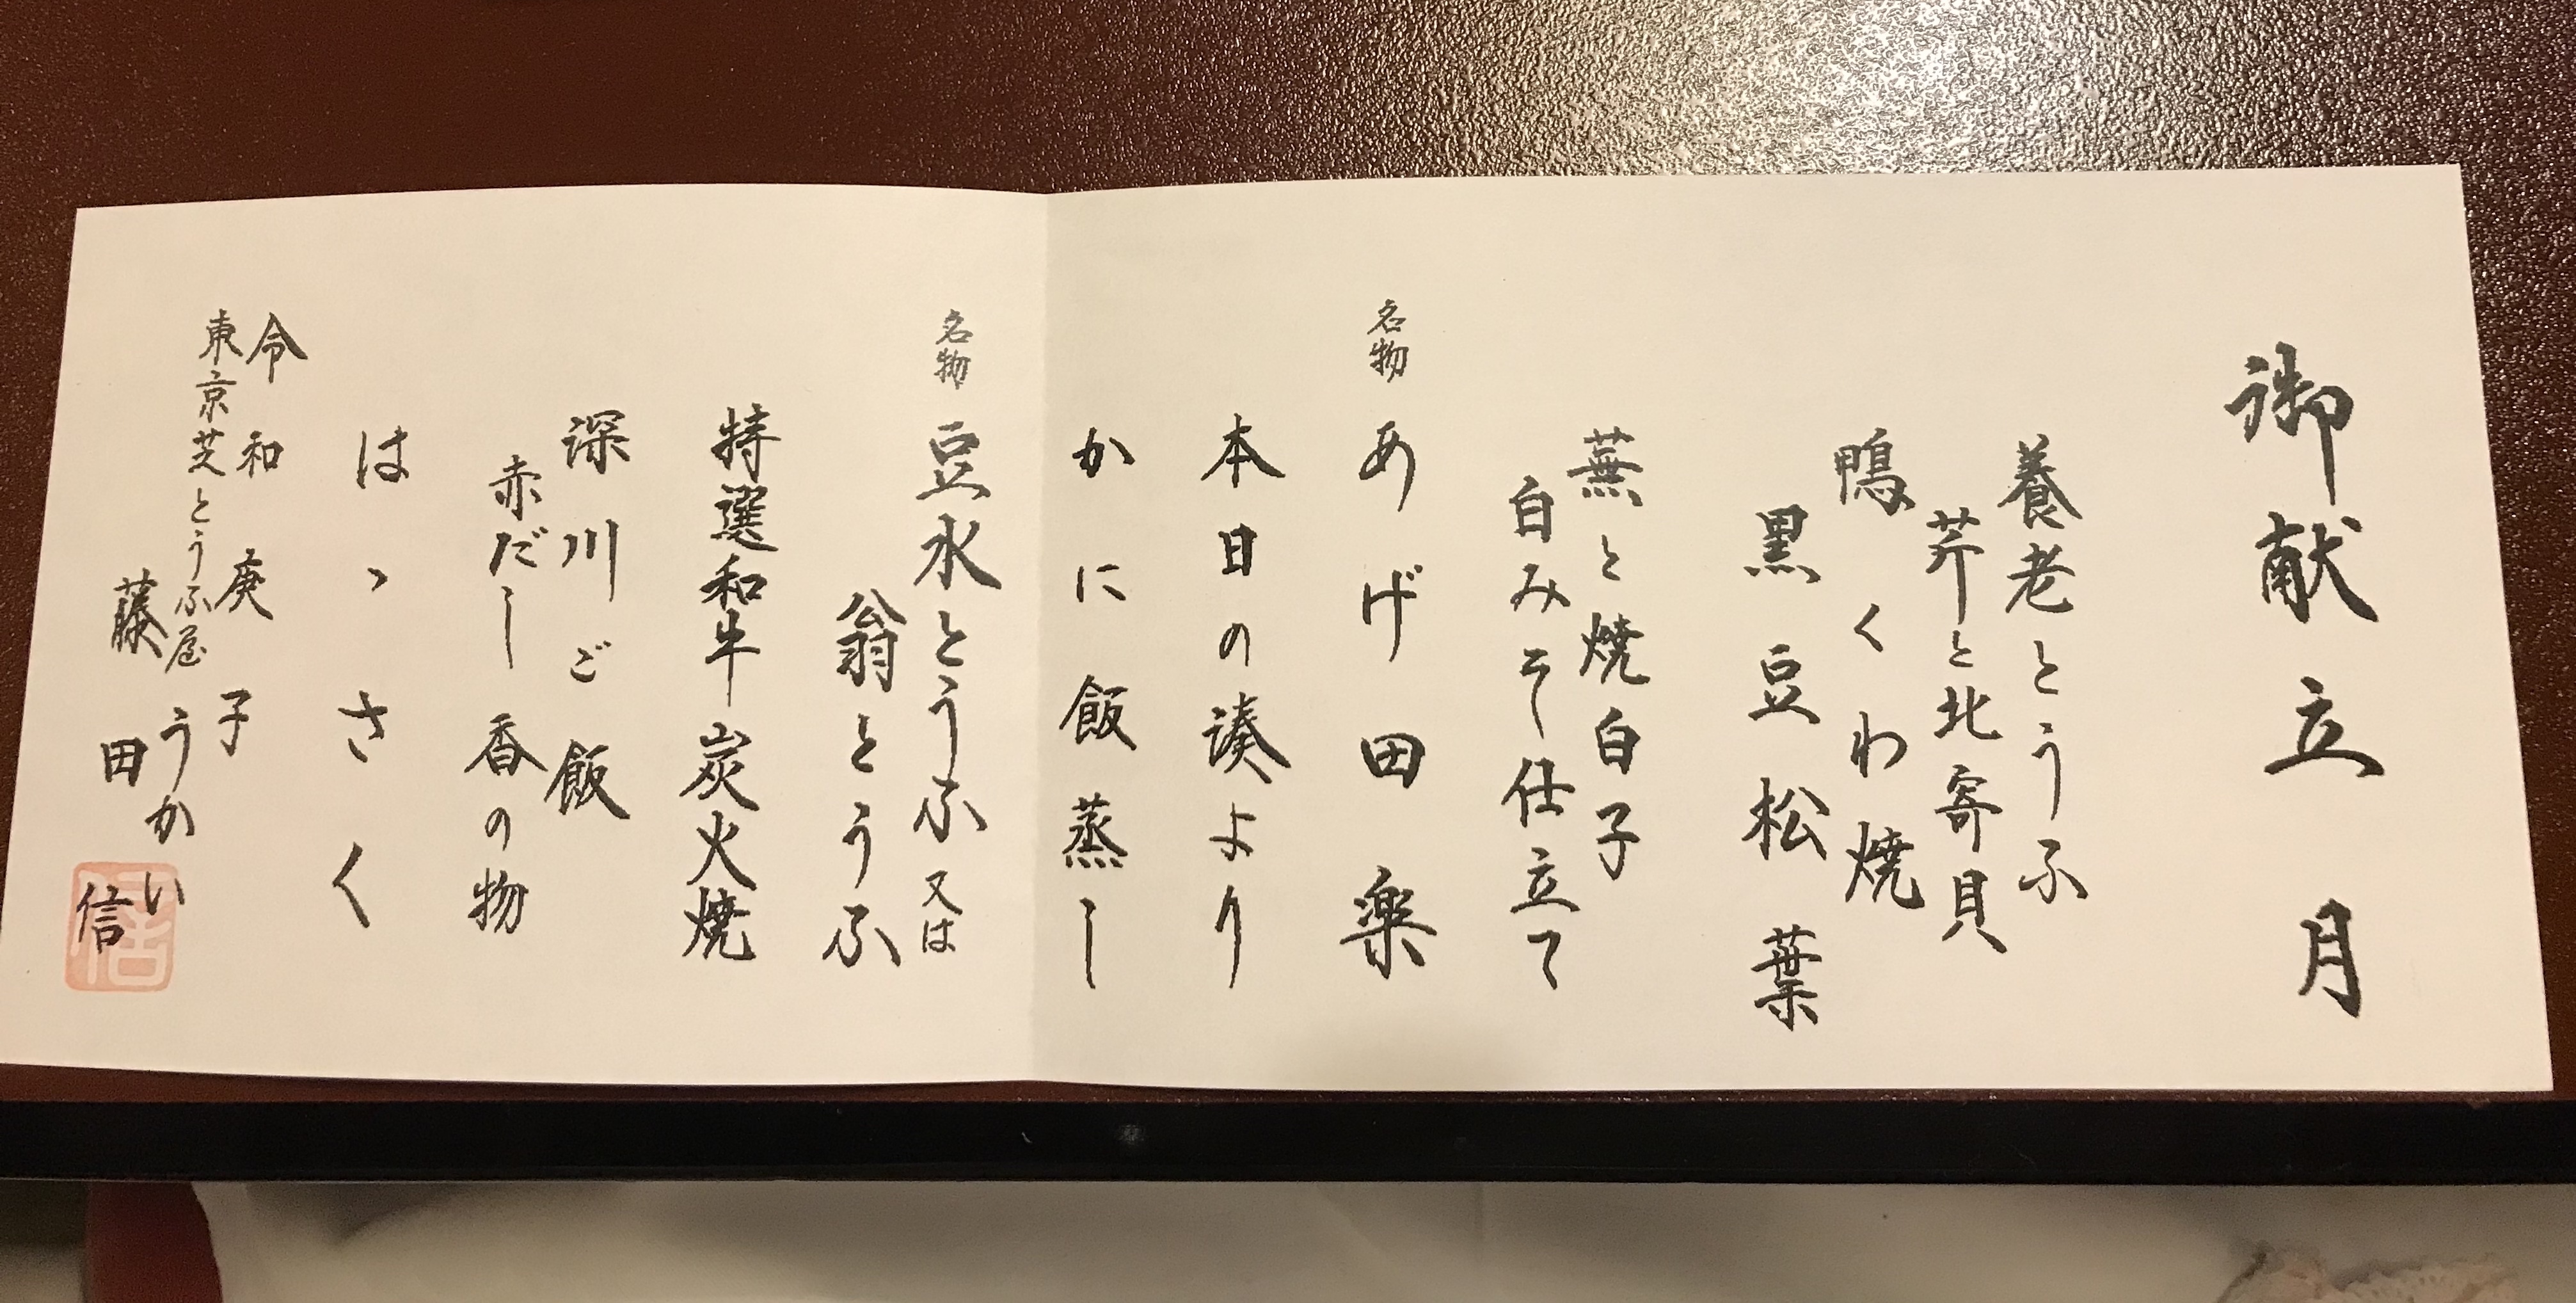 御献立 月
養老とうふ
芹と北寄貝
鴨くわ焼
黒豆松葉
蕪と焼白子
白みそ仕立て
名物 あげ田楽
本日の湊より
かに飯蒸し
名物 豆水とうふ 又は
翁とうふ
特選和牛炭火焼
深川ご飯
赤だし 香の物
はっさく
令和 庚子
東京芝とうふ屋うかい
藤田 信